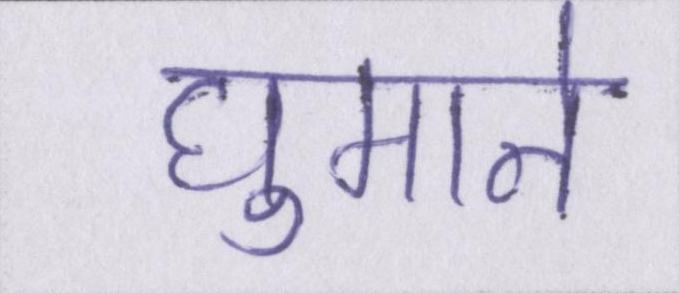 घुमाने